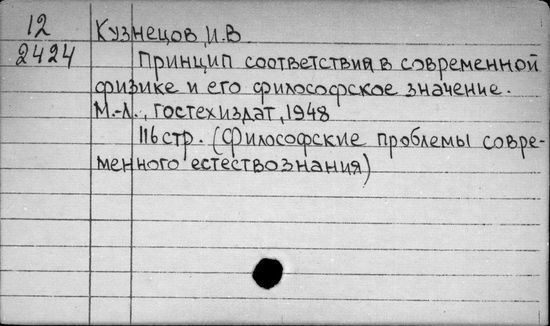 12
2424
Кузнецов, И.В
Принцип соответствия в современной
физике и его философское значение.
М.-Л., Гостехиздат, 1948
116 стр. (Философские проблемы совре-
менного естествознания)